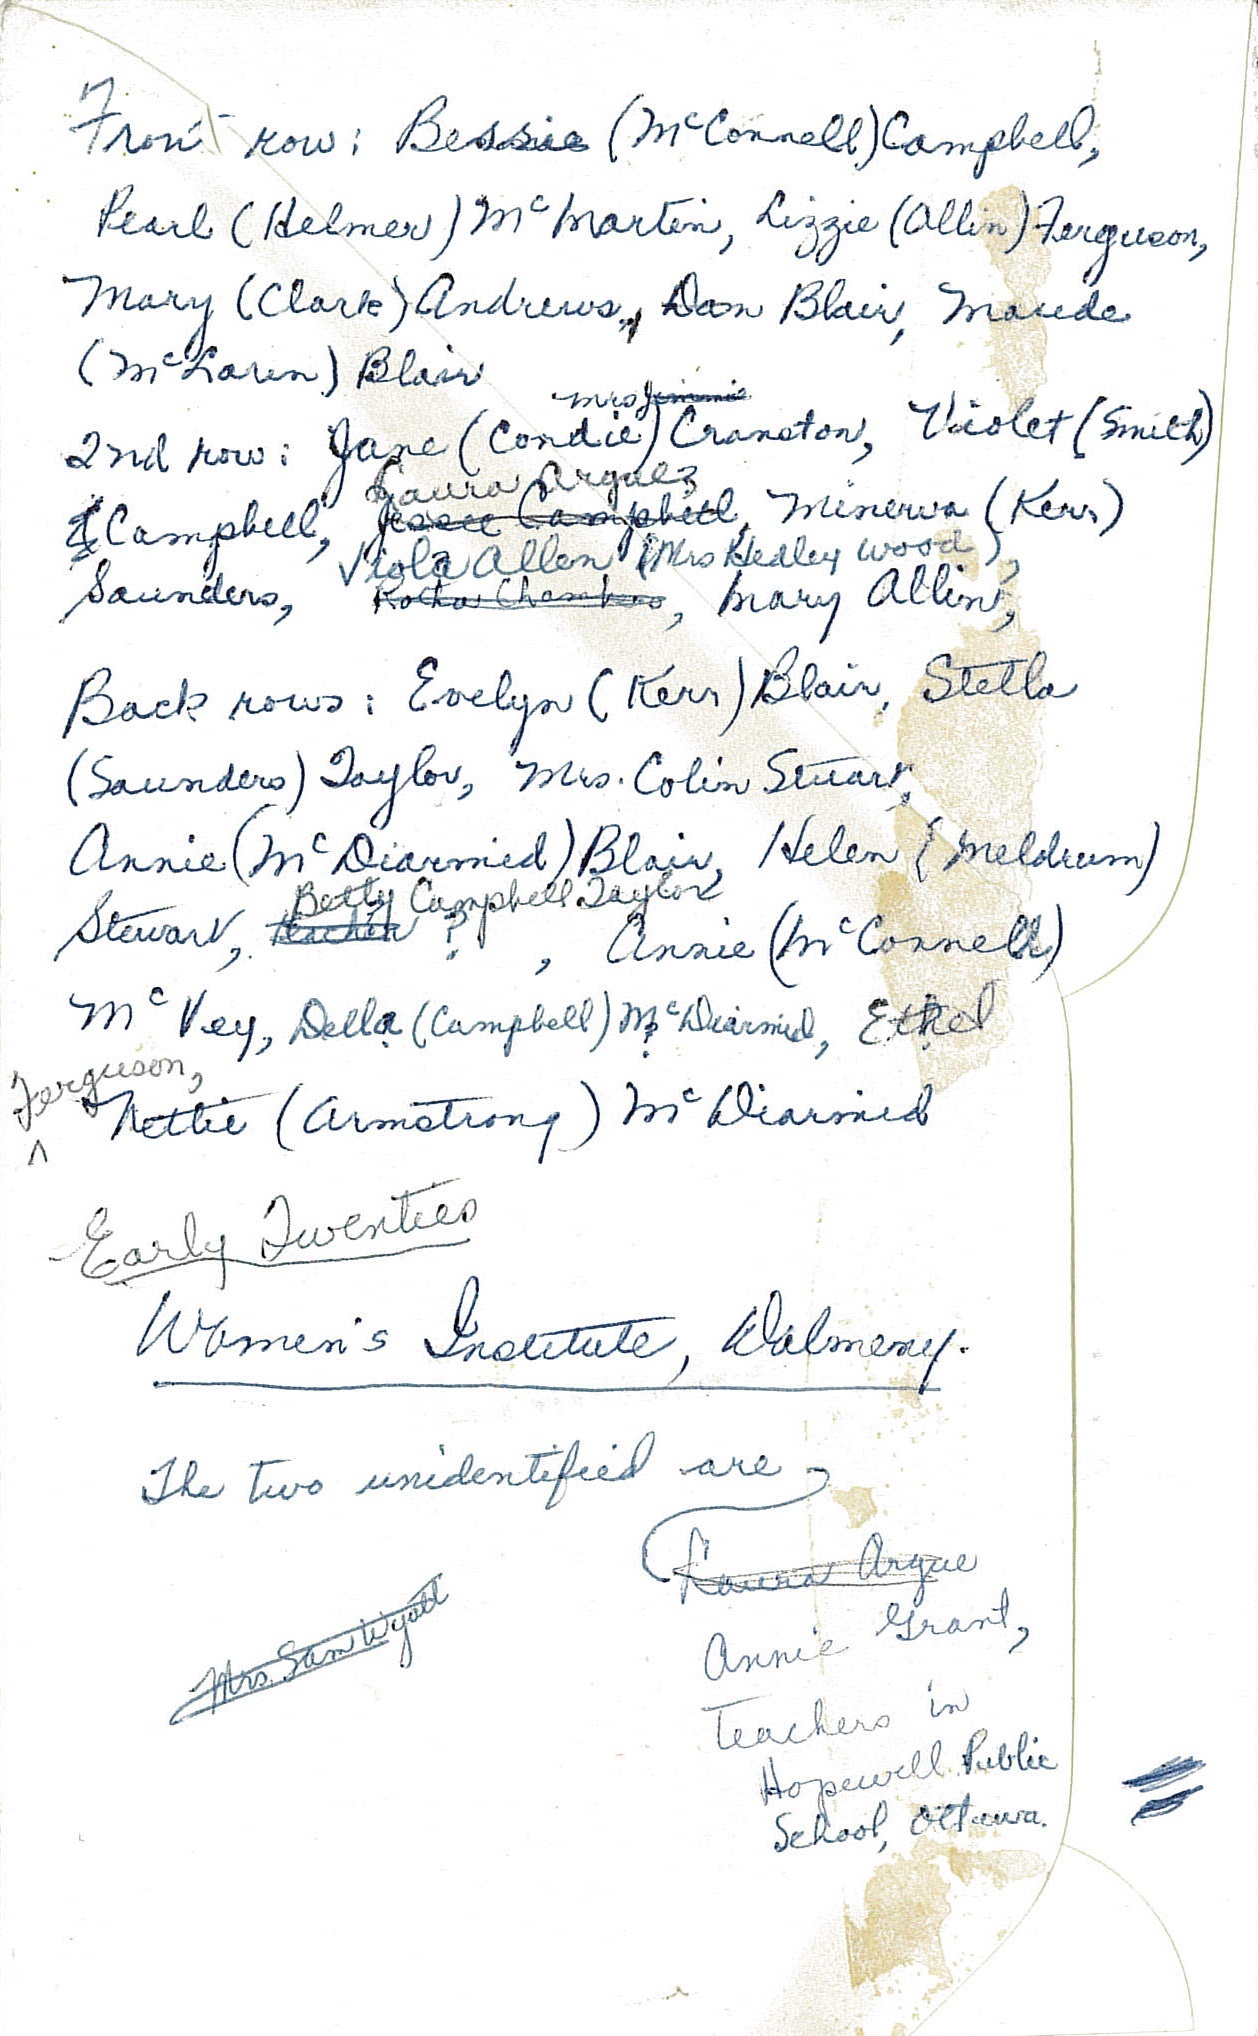 Front row: Bessie (McConnell) Campbell,
Pearl (Helmer) McMartin, Lizzie (Allin) Ferguson,
Mary (Clark) Andrews, Dan Blair, Maude
(McLaren) Blair
Mrs Jimmie
2nd row: Jane (Condie) Cranston, Violet (Smith)
Laura Argue
Campbell, Jessie Campbell, Minerva (Kerr)
Viola Allen (Mrs Hedley Wood),
Saunders, Chambers, Mary Allin,
Back rows: Evelyn (Kerr) Blair, Stella
(Saunders) Taylor, Mrs. Colin Stuart,
Annie (McDiarmid) Blair, Helen (Meldrum)
Betty Campbell Taylor
Stewart, teacher ?, Annie (McConnell)
McVey, Della (Campbell) McDiarmid, Ethel
Ferguson,
^ Nettie (Armstrong) McDiarmid
Early Twenties
Women's Institute, Dalmeny.
The two unidentified are
Laura Argue
Mrs. Sam Wyatt
Annie Grant,
Teachers in
Hopewell Public
School, Ottawa.